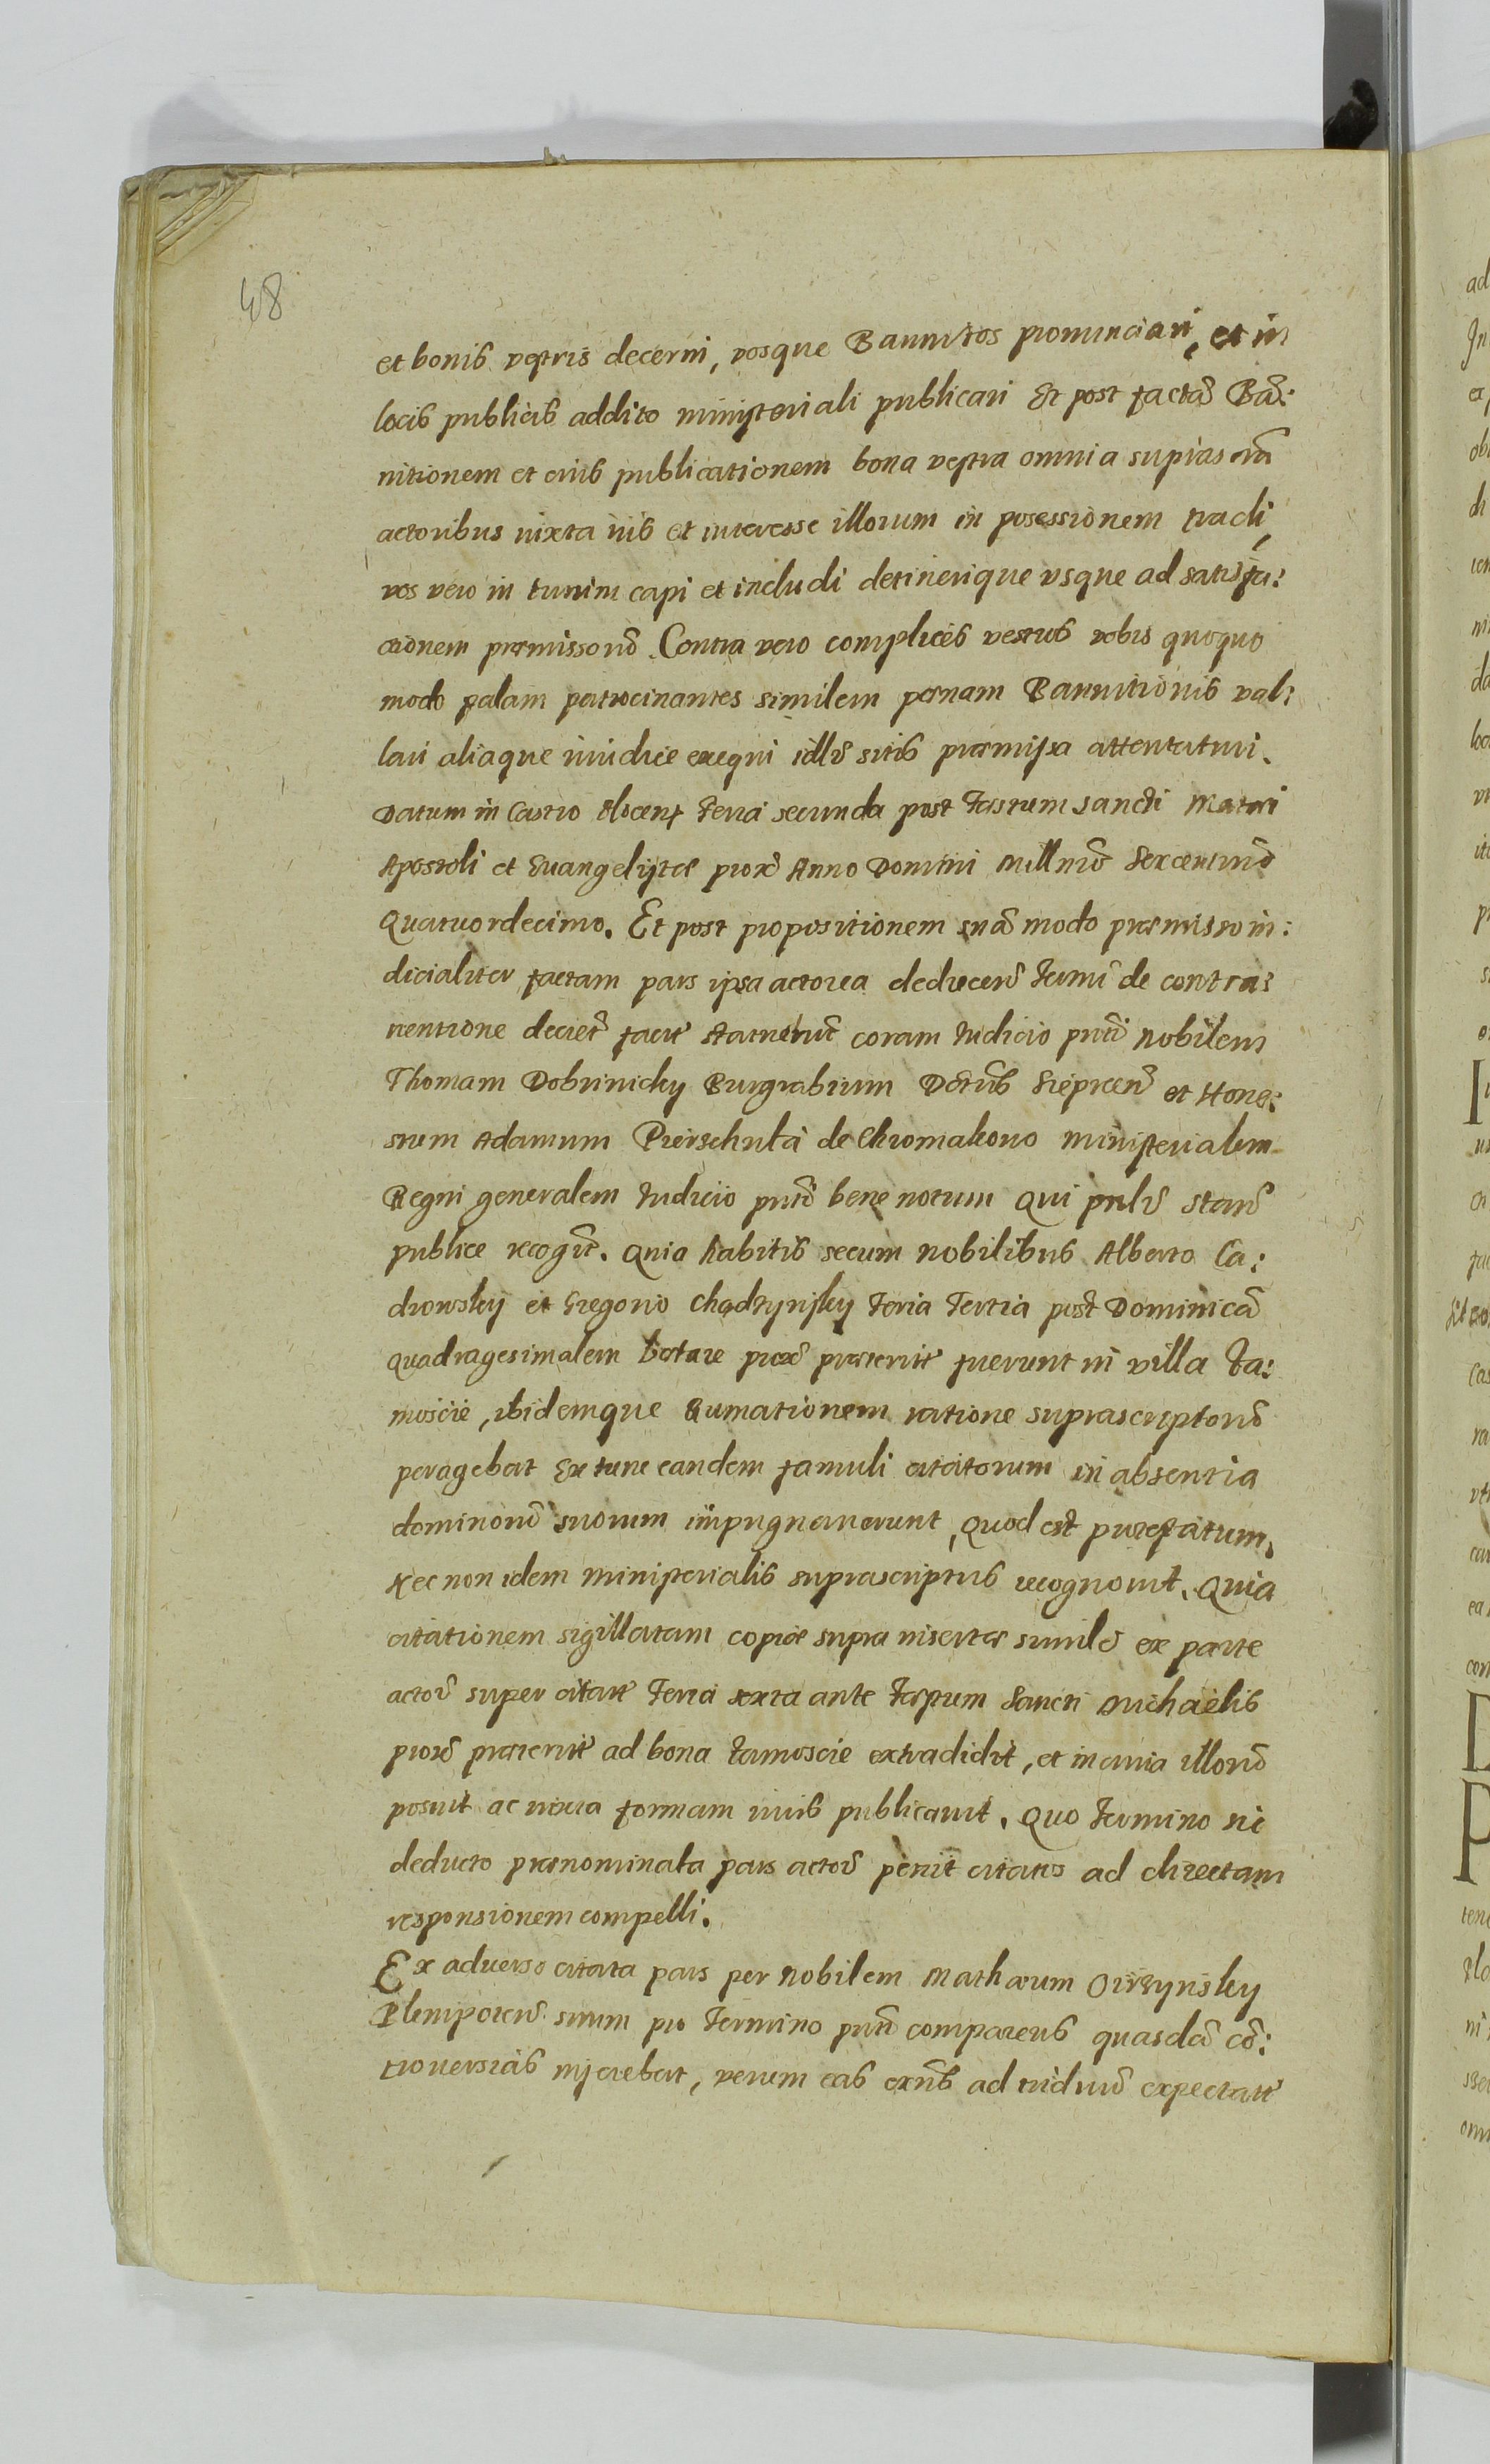 48
et bonis vestris decerni, vosque Bannitos pronunciari, et in
locis publicis addito ministeriali publicari Et post factã Bã:
nitionem et eius publicationem bona vestra omnia
actoribus iuxta ius et interesse illorum in posessionem tradi,
vos vero in turrim capi et includi detinerique vsque ad satisfa:
ctionem præmissorũ. Contra vero complices vestros vobis quoquo
modo palam patrocinantes similem pœnam Bannitionis val:
lari aliaque iuridice exequi sitis præmissa attentaturi.
Datum in Castro Plocen feria secunda post Festum Sancti Mattæi
Apostoli et Euangelistæ prox Anno Domini Millmõ Sexcentmõ
Quatuordecimo. Et post propositionem suã modo præmisso iu:
dicialiter factam pars ipsa actorea deducen termi de contra:
uentione decret fact statuerũt coram Iudicio pnti Nobilem
Thomam Dobrinicky Burgrabium Siepreen et Hone:
stum Adamum Pierschuta de Chromakowo Ministerialem
Regni generalem Iudicio pnti bene notum Qui pnlr stans
publice recogũt. Quia habitis secum Nobilibus Alberto Ca:
drowsky et Gregorio Chadzynsky feria Tertia post Dominicã
Quadragesimalem Lætare prox præterit fuerunt in villa Ta:
moscie, ibidemque Rumationem ratione suprascriptorũ
peragebat Ex tunc eandem famuli citatorum in absentia
dominorũ suorum impugnauerunt, Quod est
Nec non idem Ministerialis suprascriptus recognouit. Quia
citationem sigillatam copiæ supra insertæ simile ex parte
actor super citatt Feria sexta ante Festum Sancti Michaelis
prox præterit ad bona Tamoscie extradidit, et in curia illorũ
posuit ac iuxta formam iuris publicauit. Quo Termino sic
deducto prænominata pars actor petiit citatos ad directam
responsionem compelli.
Ex aduerso citata pars per Nobilem Mathæum
Plempoten suum pro Termino pnti comparens quasdã cõ:
trouersias inferebat, verum eas ad triduũ expectatt